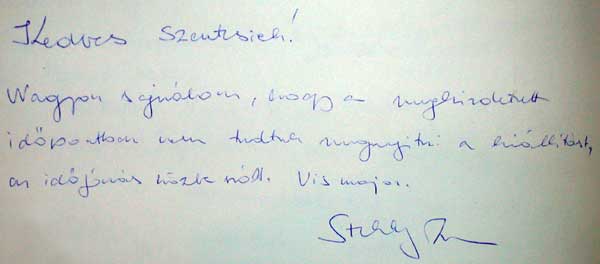 Kedves Szentesiek!
Nagyon sajnálom, hogy a meghirdetett
időpontban nem tudtuk megnyitni a kiállítást,
az időjárás közbe szólt. Vis major.